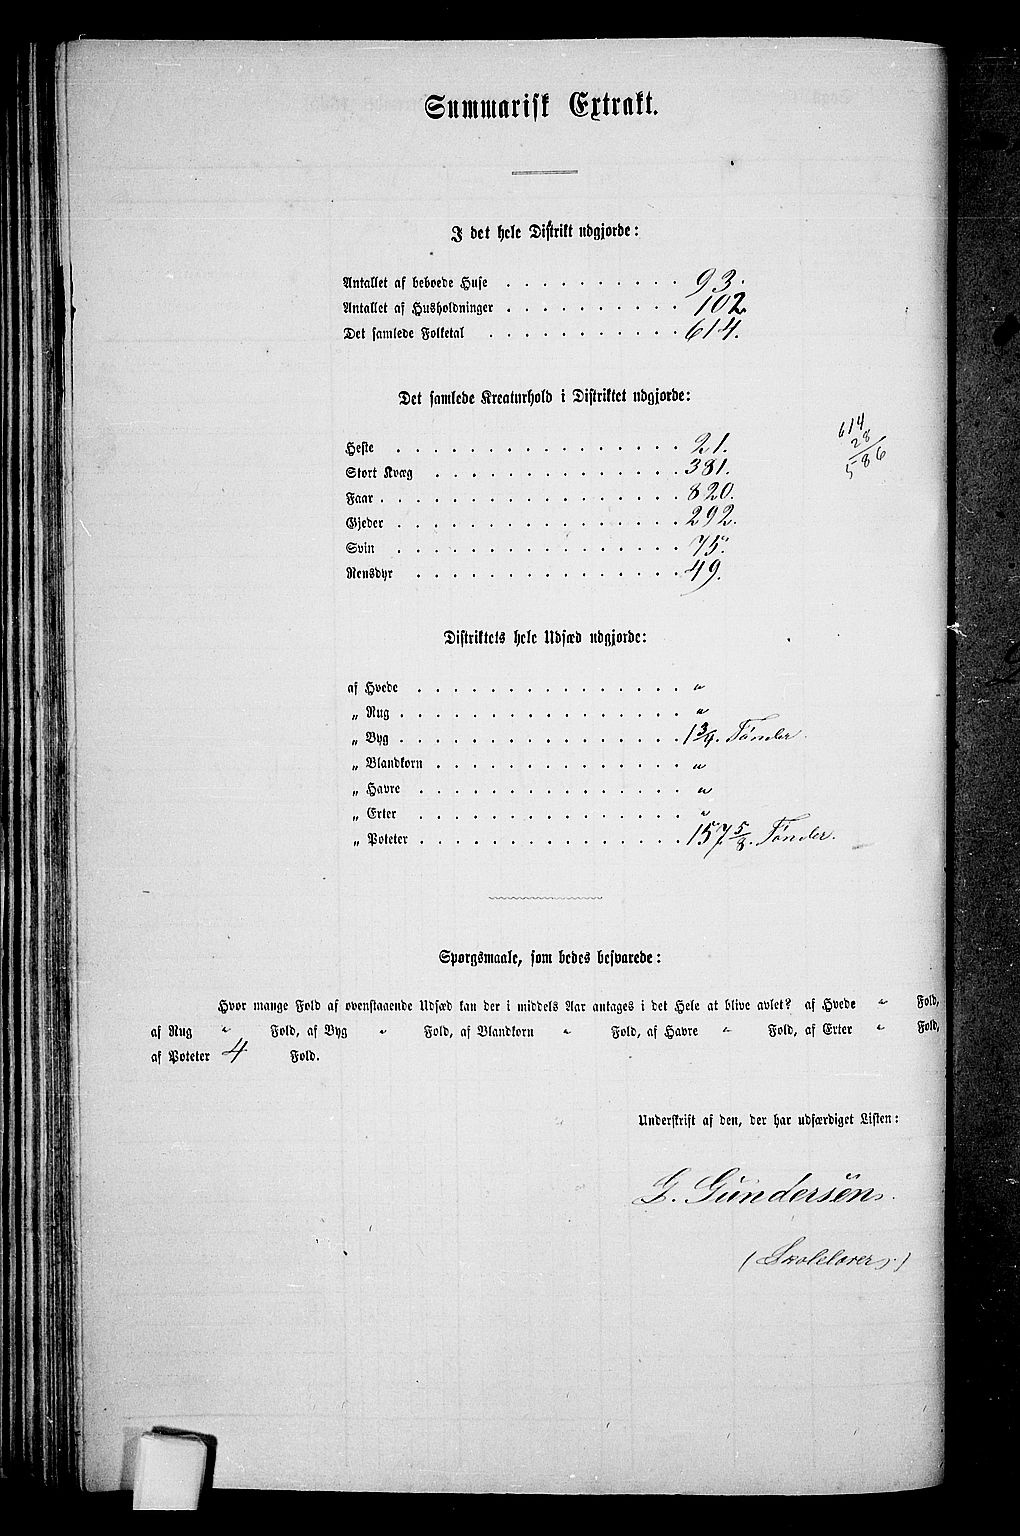 Summarisk Extrakt.
I det hele Distrikt udgjorde:
Antallet af beboede Huse . . . . . . . . . . 93.
Antallet af Husholdninger . . . . . . . . . . 102.
Det samlede Folketal . . . . . . . . . . . 614.
Det samlede Kreaturhold i Distriktet udgjorde:
Heste . . . . . . . . . . . . . . . . 21.
Stort Kvæg . . . . . . . . . . . . . . 381.
Faar . . . . . . . . . . . . . . . . . 820.
Gjeder . . . . . . . . . . . . . . . . 292.
Svin . . . . . . . . . . . . . . . . 75.
Rensdyr . . . . . . . . . . . . . . . 49.
614
28
586
Distriktets hele Udsæd udgjorde:
af Hvede . . . . . . . . . . . . . . . "
„ Rug . . . . . . . . . . . . . . . . "
„ Byg . . . . . . . . . . . . . . . . Tønder.
„ Blandkorn . . . . . . . . . . . . . . "
„ Havre . . . . . . . . . . . . . . . "
„ Erter . . . . . . . . . . . . . . . "
„ Poteter . . . . . . . . . . . . . . . 157 5/8. Tønder.
Spørgsmaale, som bedes besvarede:
Hvor mange Fold af ovenstaaende Udsæd kan der i middels Aar antages i det Hele at blive avlet? af Hvede " Fold,
af Rug " Fold, af Byg " Fold, af Blandkorn " Fold, af Havre " Fold, af Erter " Fold,
af Poteter 4 Fold.
Underskrift af den, der har udfærdiget Listen:
G. Gundersen.
(Skolelærer.)